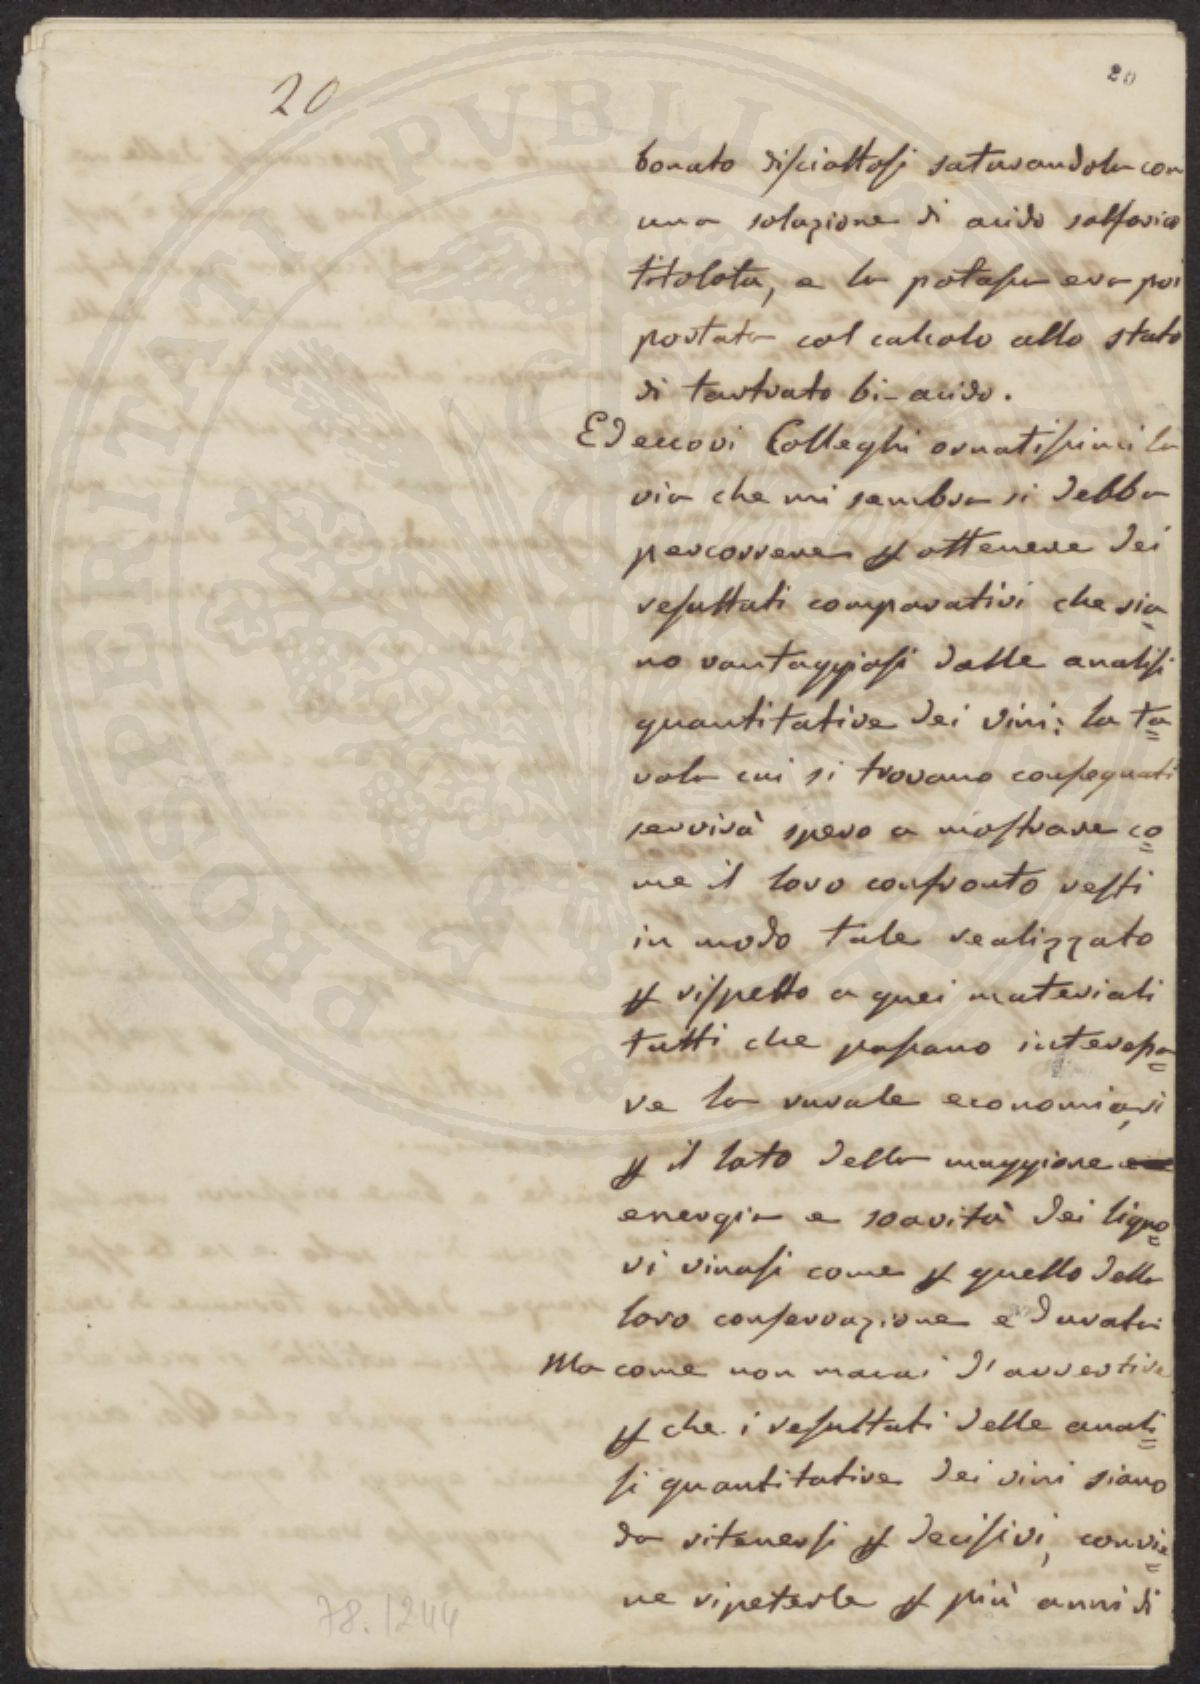 20
20
bonato discioltosi saturandola con
una soluzione di acido solforico
titolata, e la potassa era poi
portata col calcolo allo stato
di tartrato bi-acido.
Ed eccovi Colleghi ornatissimi la
via che mi sembra si debba
percorrere p ottenere dei
resultati comparativi che sia=
no vantaggiosi dalle analisi
quantitative dei vini: la ta=
vola cui si trovano consegnati
servirà spero a mostrare co=
me il loro confronto resti
in modo tale realizzato
p rispetto a quei materiali
tutti che possano interessa=
re la rurale economia, sì
p il lato della maggiore
energia e soavità dei liquo=
ri vinosi come p quello della
loro conservazione e durata.
Ma come non macai d'avvertire
p che i resultati delle anali=
si quantitative dei vini siano
da ritenersi p decisivi, convie=
ne ripeterle p più anni di
78.1244
PROSPERITATI PVBLICAE